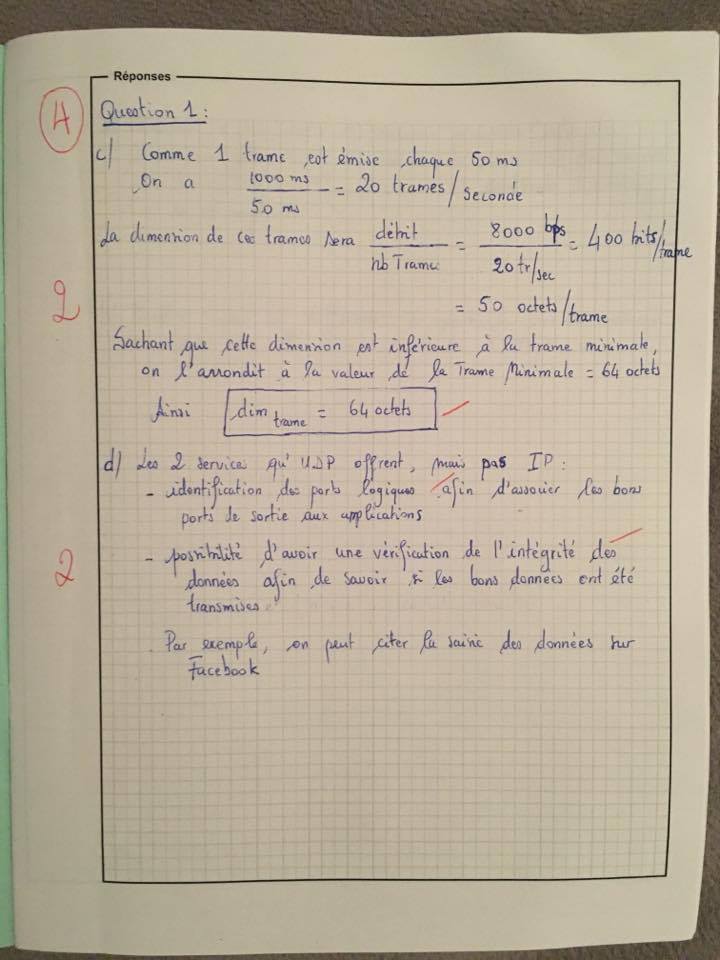 Réponses
4
Question 1 :
c) Comme 1 trame est émise chaque 50 ms
On a 1000 ms / 50 ms = 20 trames/seconde
La dimension de ces trames sera débit / nb Trame = 8000 bps / 20 tr/sec = 400 bits/trame
= 50 octets/trame
2
Sachant que cette dimension est inférieure à la trame minimale,
on l'arrondit à la valeur de la Trame Minimale = 64 octets
Ainsi dim trame = 64 octets
d) Les 2 services qu'UDP offrent, mais pas IP :
- identification des ports logiques afin d'associer les bons
ports de sortie aux applications
2
- possibilité d'avoir une vérification de l'intégrité des
données afin de savoir si les bons données ont été
transmises.
Par exemple, on peut citer la saisie des données sur
Facebook